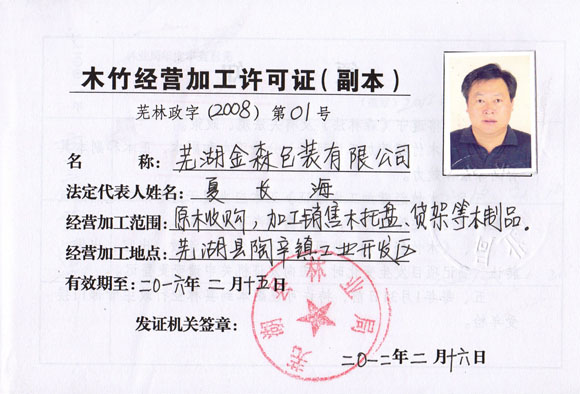 木竹经营加工许可证（副本）
芜林政字（2008）第01号
名 称：芜湖金森包装有限公司
法定代表人姓名：夏长海
经营加工范围：原木收购，加工销售木托盘、货架等木制品。
经营加工地点：芜湖县陶辛镇工业开发区
有效期至：二〇一六年二月十五日
发证机关签章：
芜湖县林业局
二〇一二年二月十六日